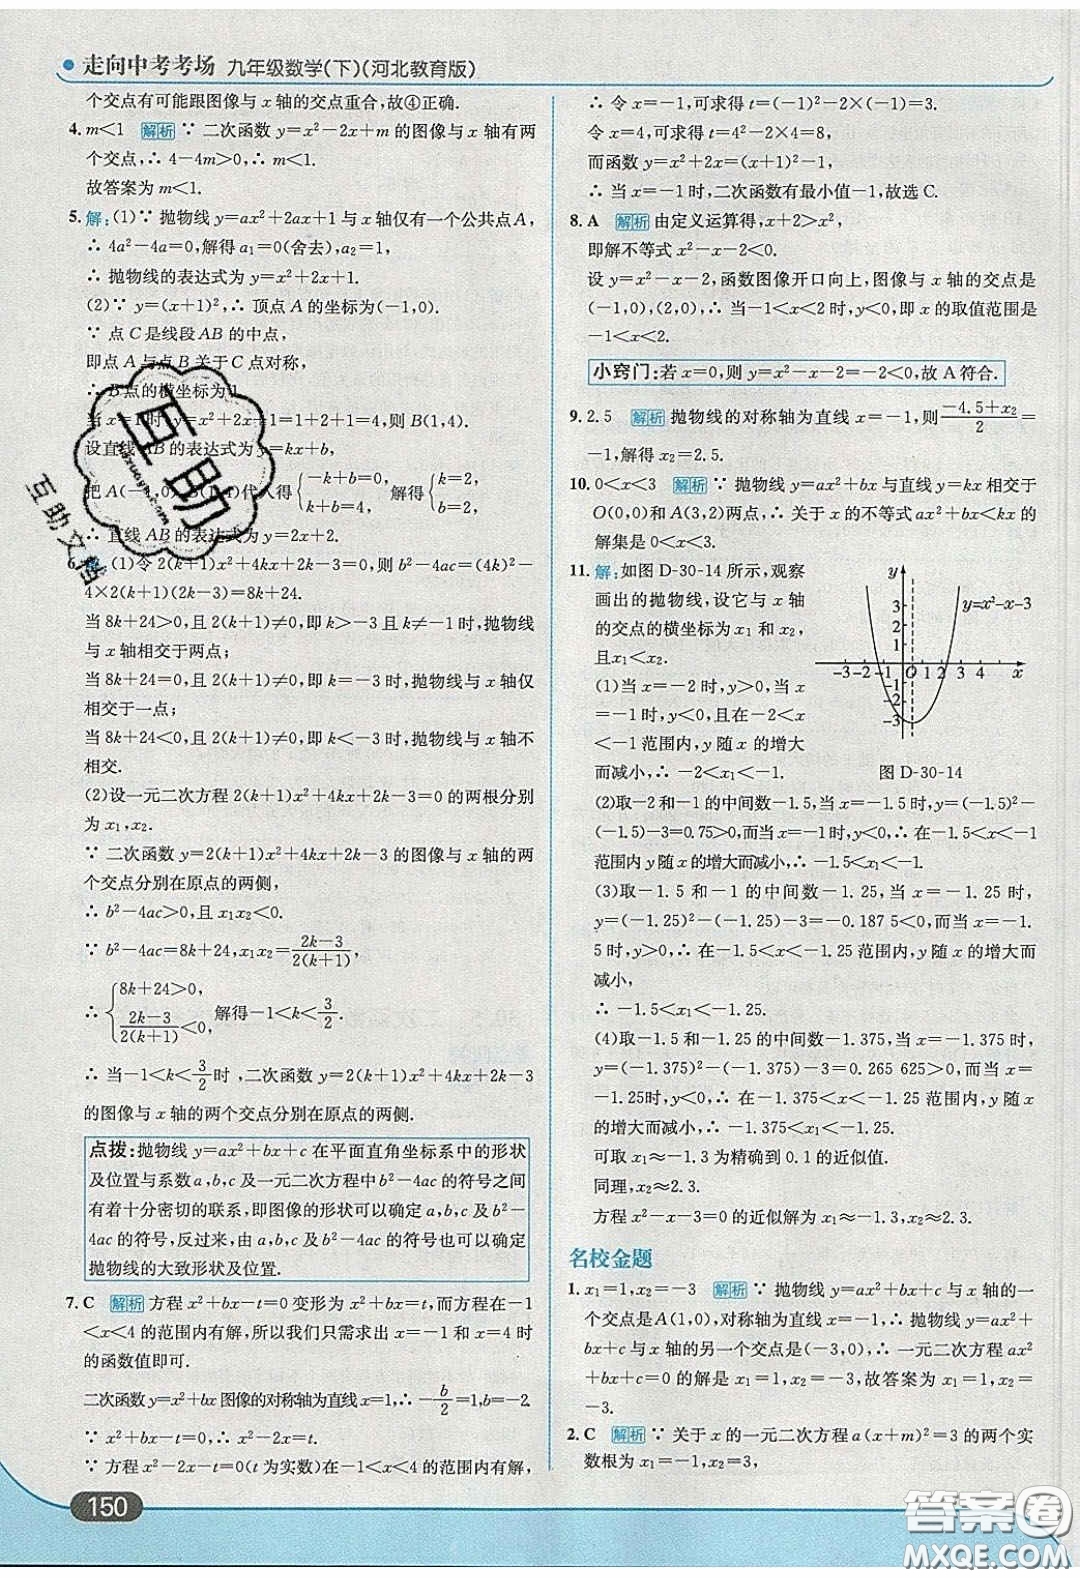 走向中考考场 九年级数学(下)(河北教育版)
个交点有可能跟图像与 x 轴的交点重合,故④正确.
4. m<1 解析 ∵ 二次函数 y=x²-2x+m 的图像与 x 轴有两
个交点,∴ 4-4m>0,∴ m<1.
故答案为 m<1.
5. 解:(1)∵ 抛物线 y=ax²+2ax+1 与 x 轴仅有一个公共点 A,
∴ 4a²-4a=0,解得 a₁=0(舍去),a₂=1,
∴ 抛物线的表达式为 y=x²+2x+1.
(2)∵ y=(x+1)²,∴ 顶点 A 的坐标为(-1,0).
∵ 点 C 是线段 AB 的中点,
即点 A 与点 B 关于 C 点对称,
∴ B 点的横坐标为 1.
当 x=1 时,y=x²+2x+1=1+2+1=4,则 B(1,4).
设直线 AB 的表达式为 y=kx+b,
把 A(-1,0),B(1,4)代入得 {-k+b=0, k+b=4, 解得 {k=2, b=2,
∴ 直线 AB 的表达式为 y=2x+2.
6. 解:(1)令 2(k+1)x²+4kx+2k-3=0,则 b²-4ac=(4k)²-
4×2(k+1)(2k-3)=8k+24.
当 8k+24>0,且 2(k+1)≠0,即 k>-3 且 k≠-1 时,抛物线
与 x 轴相交于两点;
当 8k+24=0,且 2(k+1)≠0,即 k=-3 时,抛物线与 x 轴仅
相交于一点;
当 8k+24<0,且 2(k+1)≠0,即 k<-3 时,抛物线与 x 轴不
相交.
(2)设一元二次方程 2(k+1)x²+4kx+2k-3=0 的两根分别
为 x₁,x₂.
∵ 二次函数 y=2(k+1)x²+4kx+2k-3 的图像与 x 轴的两
个交点分别在原点的两侧,
∴ b²-4ac>0,且 x₁x₂<0.
∵ b²-4ac=8k+24,x₁x₂=(2k-3)/(2(k+1)),
∴ {8k+24>0, (2k-3)/(2(k+1))<0, 解得-1<k<3/2.
∴ 当-1<k<3/2时,二次函数 y=2(k+1)x²+4kx+2k-3
的图像与 x 轴的两个交点分别在原点的两侧.
点拨:抛物线 y=ax²+bx+c 在平面直角坐标系中的形状
及位置与系数 a,b,c 及一元二次方程中 b²-4ac 的符号之间
有着十分密切的联系,即图像的形状可以确定 a,b,c 及 b²-
4ac 的符号,反过来,由 a,b,c 及 b²-4ac 的符号也可以确定
抛物线的大致形状及位置.
7. C 解析 方程 x²+bx-t=0 变形为 x²+bx=t,而方程在-1
<x<4 的范围内有解,所以我们只需求出 x=-1 和 x=4 时
的函数值即可.
二次函数 y=x²+bx 图像的对称轴为直线 x=1,∴ -b/2=1,b=-2.
∵ x²+bx-t=0,∴ x²-2x=t.
∵ 方程 x²-2x-t=0(t 为实数)在-1<x<4 的范围内有解,
150
∴ 令 x=-1,可求得 t=(-1)²-2×(-1)=3.
令 x=4,可求得 t=4²-2×4=8,
而函数 y=x²+2x=(x+1)²-1,
∴ 当 x=-1 时,二次函数有最小值-1,故选 C.
8. A 解析 由定义运算得,x+2>x²,
即解不等式 x²-x-2<0.
设 y=x²-x-2,函数图像开口向上,图像与 x 轴的交点是
(-1,0),(2,0),∴ 当-1<x<2 时,y<0,即 x 的取值范围是
-1<x<2.
小窍门:若 x=0,则 y=x²-x-2=-2<0,故 A 符合.
9. 2.5 解析 抛物线的对称轴为直线 x=-1,则(-4.5+x₂)/2=
-1,解得 x₂=2.5.
10. 0<x<3 解析 ∵ 抛物线 y=ax²+bx 与直线 y=kx 相交于
O(0,0)和 A(3,2)两点,∴ 关于 x 的不等式 ax²+bx<kx 的
解集是 0<x<3.
11. 解:如图 D-30-14 所示,观察
画出的抛物线,设它与 x 轴
的交点的横坐标为 x₁ 和 x₂,
且x₁<x₂.
(1)当 x=-2 时,y>0,当 x
=-1 时,y<0,且在-2<x<
-1 范围内,y 随 x 的增大
而减小,∴ -2<x₁<-1.
y
y=x²-x-3
3
2
1
-3 -2 -1 O 1 2 3 4 x
-1
-2
-3
图 D-30-14
(2)取-2 和-1 的中间数-1.5,当 x=-1.5 时,y=(-1.5)²-
(-1.5)-3=0.75>0,而当 x=-1 时,y<0,∴ 在-1.5<x<-1
范围内 y 随 x 的增大而减小,∴ -1.5<x₁<-1.
(3)取-1.5 和-1 的中间数-1.25,当 x=-1.25 时,
y=(-1.25)²-(-1.25)-3=-0.187 5<0,而当 x=-1.
5 时,y>0,∴ 在-1.5<x<-1.25 范围内,y 随 x 的增大而
减小,
∴ -1.5<x₁<-1.25.
(4)取-1.5 和-1.25 的中间数-1.375,当 x=-1.375 时,
y=(-1.375)²-(-1.375)-3=0.265 625>0,而当 x=
-1.25 时,y<0,∴ 在-1.375<x<-1.25 范围内,y 随 x
的增大而减小,∴ -1.375<x₁<-1.25.
可取 x₁≈-1.3 为精确到 0.1 的近似值.
同理,x₂≈2.3.
方程 x²-x-3=0 的近似解为 x₁≈-1.3,x₂≈2.3.
名校金题
1. x₁=1,x₂=-3 解析 ∵ 抛物线 y=ax²+bx+c 与 x 轴的一
个交点是A(1,0),对称轴为直线 x=-1,∴ 抛物线 y=ax²+
bx+c 与 x 轴的另一个交点是(-3,0),∴ 一元二次方程 ax²
+bx+c=0 的解是 x₁=1,x₂=-3,故答案为 x₁=1,x₂=
-3.
2. C 解析 ∵ 关于 x 的一元二次方程 a(x+m)²=3 的两个实
数根为 x₁=-1,x₂=3,
互助
互助文档
答案圈
MXQE.COM